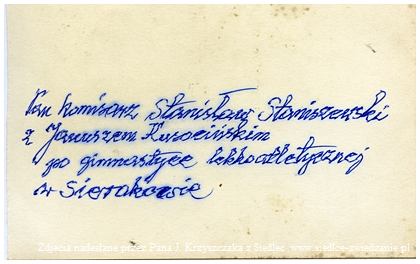 Pan komisarz Stanisław Staniszewski
z Januszem Kusocińskim
po gimnastyce lekkoatletycznej
w Sierakowie
Zdjęcia nadesłane przez Pana J. Krzyszczaka z Siedlec www.siedlce-zwiedzanie.pl